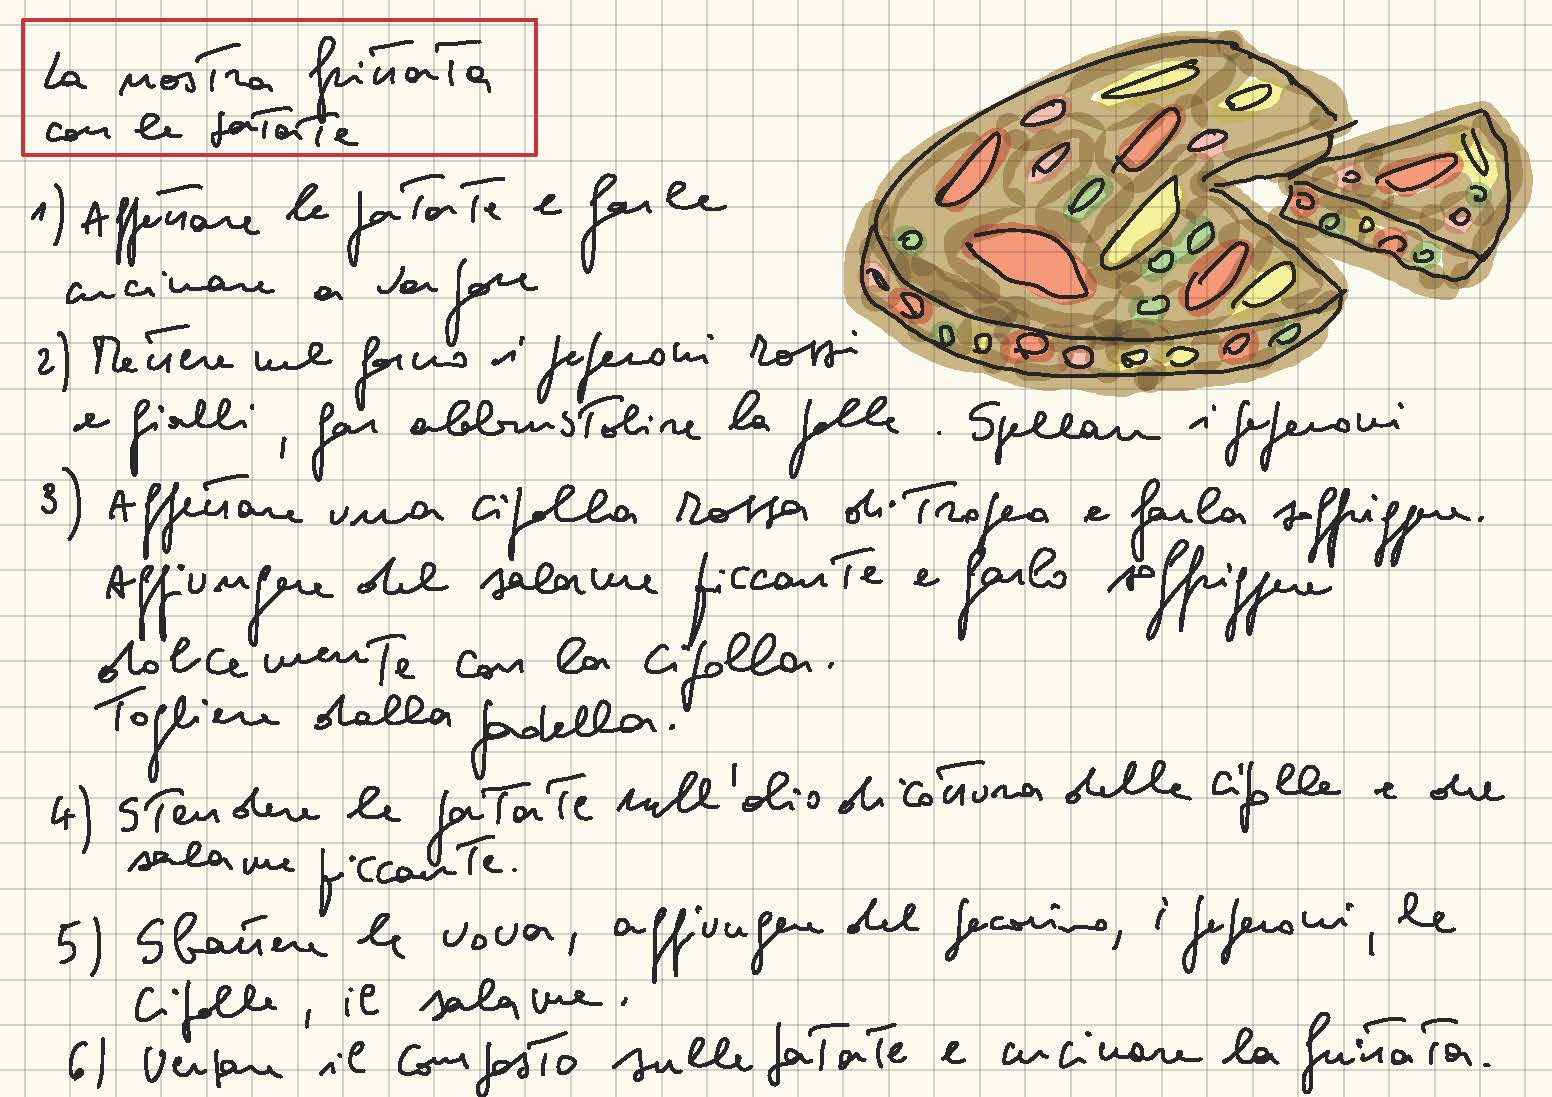 La nostra frittata
con le patate
1) Affettare le patate e farle
cucinare a vapore
2) Mettere nel forno i peperoni rossi
e gialli, far abbrustolire la pelle. Spellare i peperoni
3) Affettare una cipolla rossa di Tropea e farla soffriggere.
Aggiungere del salame piccante e farlo soffriggere
dolcemente con la cipolla.
Togliere dalla padella.
4) Stendere le patate sull'olio di cottura delle cipolle e del
salame piccante.
5) Sbattere le uova, aggiungere del pecorino, i peperoni, le
cipolle, il salame.
6) Versare il composto sulle patate e cucinare la frittata.